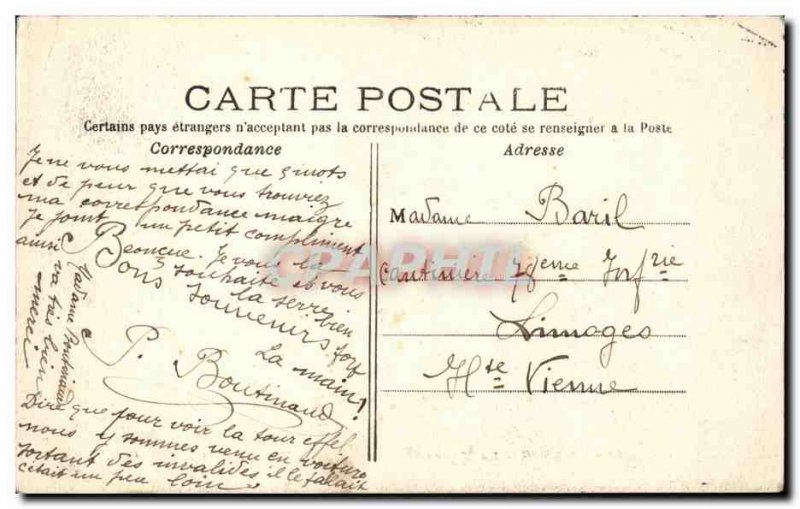 CARTE POSTALE
Certains pays étrangers n'acceptant pas la correspondance de ce coté se renseigner a la Poste
Correspondance
Je ne vous mettai que 5 mots
et de peur que vous trouviez
ma correspondance maigre
je joint un petit compliment
Je vous la
souhaite et vous
la serre bien fort
La main!
Bons Souvenirs
P. Boutinaud
Madame Boutinaud
aussi va très bien
merci
Dire que pour voir la tour effel
nous y sommes venu en voiture
sortant des invalides il le falait
cétait un peu loin
Adresse
Madame Baril
Cantinière 78eme Infrie
Limoges
Hte Vienne
CPAPHIL